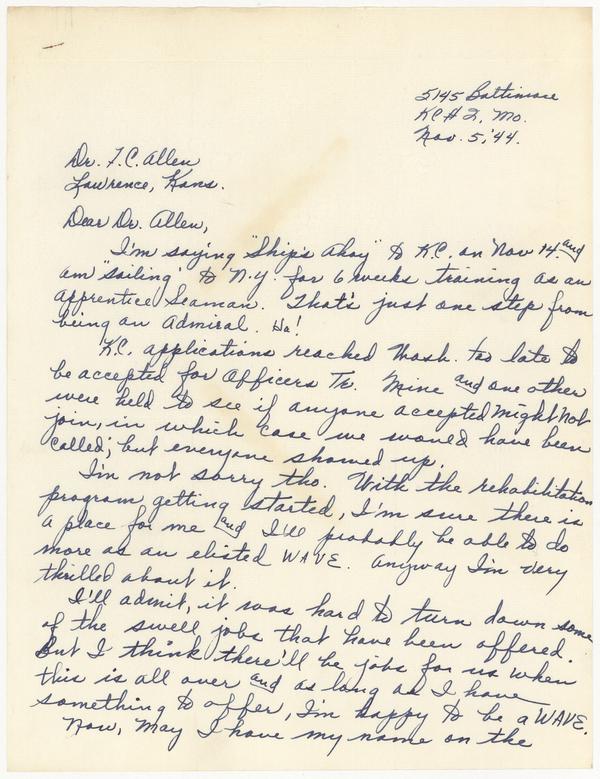 5145 Baltimore
KC # 2, Mo.
Nov. 5, '44.
Dr. F.C. Allen
Lawrence, Kans.
Dear Dr. Allen,
I'm saying "Ship's Ahoy" to K.C. on Nov 14 and
am "sailing" to N.Y. for 6 weeks training as an
apprentice Seaman. That's just one step from
being an Admiral. Ha!
K.C. applications reached Wash. too late to
be accepted for Officers Tr. Mine and one other
were held to see if anyone accepted might not
join, in which case we would have been
called; but everyone showed up.
I'm not sorry tho. With the rehabilitation
program getting started, I'm sure there is
a place for me and I'll probably be able to do
more as an elisted WAVE. Anyway I'm very
thrilled about it.
I'll admit, it was hard to turn down some
of the swell jobs that have been offered.
But I think there'll be jobs for us when
this is all over and as long as I have
something to offer, I'm happy to be a WAVE.
Now, may I have my name on the